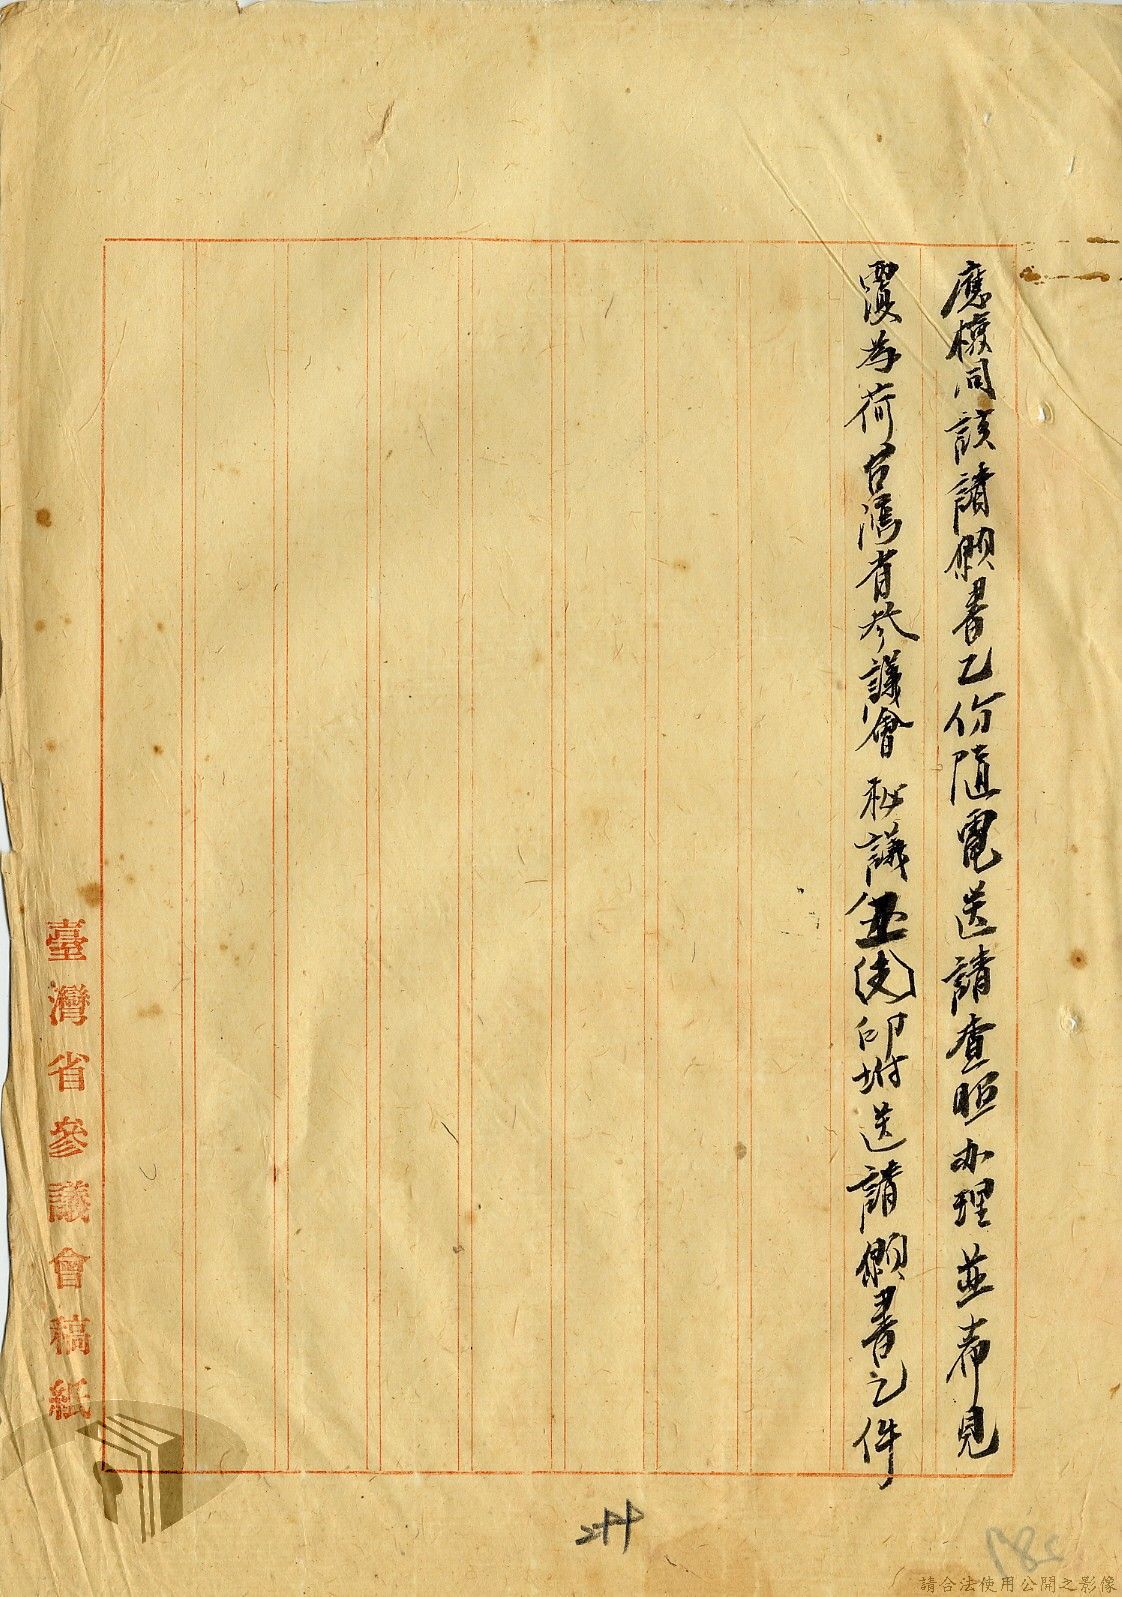 應檢同該請願書乙份隨電送請查照办理並希見
覆為荷台灣省參議會秘議 印附送請願書乙件
臺灣省參議會稿紙
請合法使用公開之影像